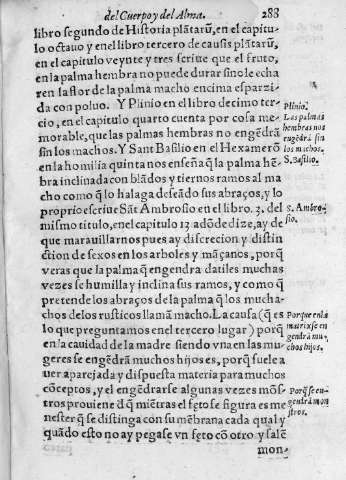 del Cuerpo y del Alma. 288
libro segundo de Historia plãtarũ, en el capitu-
lo octauo y enel libro tercero de causis plãtarũ,
en el capitulo veynte y tres scriue que el fruto,
en la palma hembra no puede durar sino le echa
ren la flor de la palma macho encima esparzi-
da con poluo. Y Plinio en el libro decimo ter-
cio, en el capitulo quarto cuenta por cosa me-
morable, que las palmas hembras no engẽdrã
sin los machos. Y Sant Basilio en el Hexamerõ
en la homilia quinta nos enseña q̃ la palma hẽ
bra inclinada con blãdos y tiernos ramos al ma
cho como q̃ lo halaga deseãdo sus abraços, y lo
proprio escriue Sãt Ambrosio en el libro. 3. del
mismo titulo, enel capitulo 13 adõde dize, ay de
que marauillarnos pues ay discrecion y distin
ction de sexos en los arboles y mãçanos, porq̃
veras que la palma q̃ engendra datiles muchas
vezes se humilla y inclina sus ramos, y como q̃
pretende los abraços de la palma q̃ los mucha-
chos delos rusticos llamã macho. La causa (q̃ es
lo que preguntamos enel tercero lugar) porq̃
en la cauidad de la madre siendo vna en las mu-
geres se engendrã muchos hijos es, porq̃ suele a
uer aparejada y dispuesta materia para muchos
cõceptos, y el engẽdrarse algunas vezes mõs-
tros prouiene d̃ q̃ miẽtras el feto se figura es me
nester q̃ se distinga con su mẽbrana cada qual y
quãdo esto no ay pegase vn feto cõ otro y salẽ
mon-
Plinio.
Las palmas
hembras nos
engẽdrã sin
los machos.
S. Basilio.
S. Ambro-
sio.
Porque en la
matrix se en
gendrã mu-
chos hijos.
Porq̃ se en-
gendrã mon
stros.